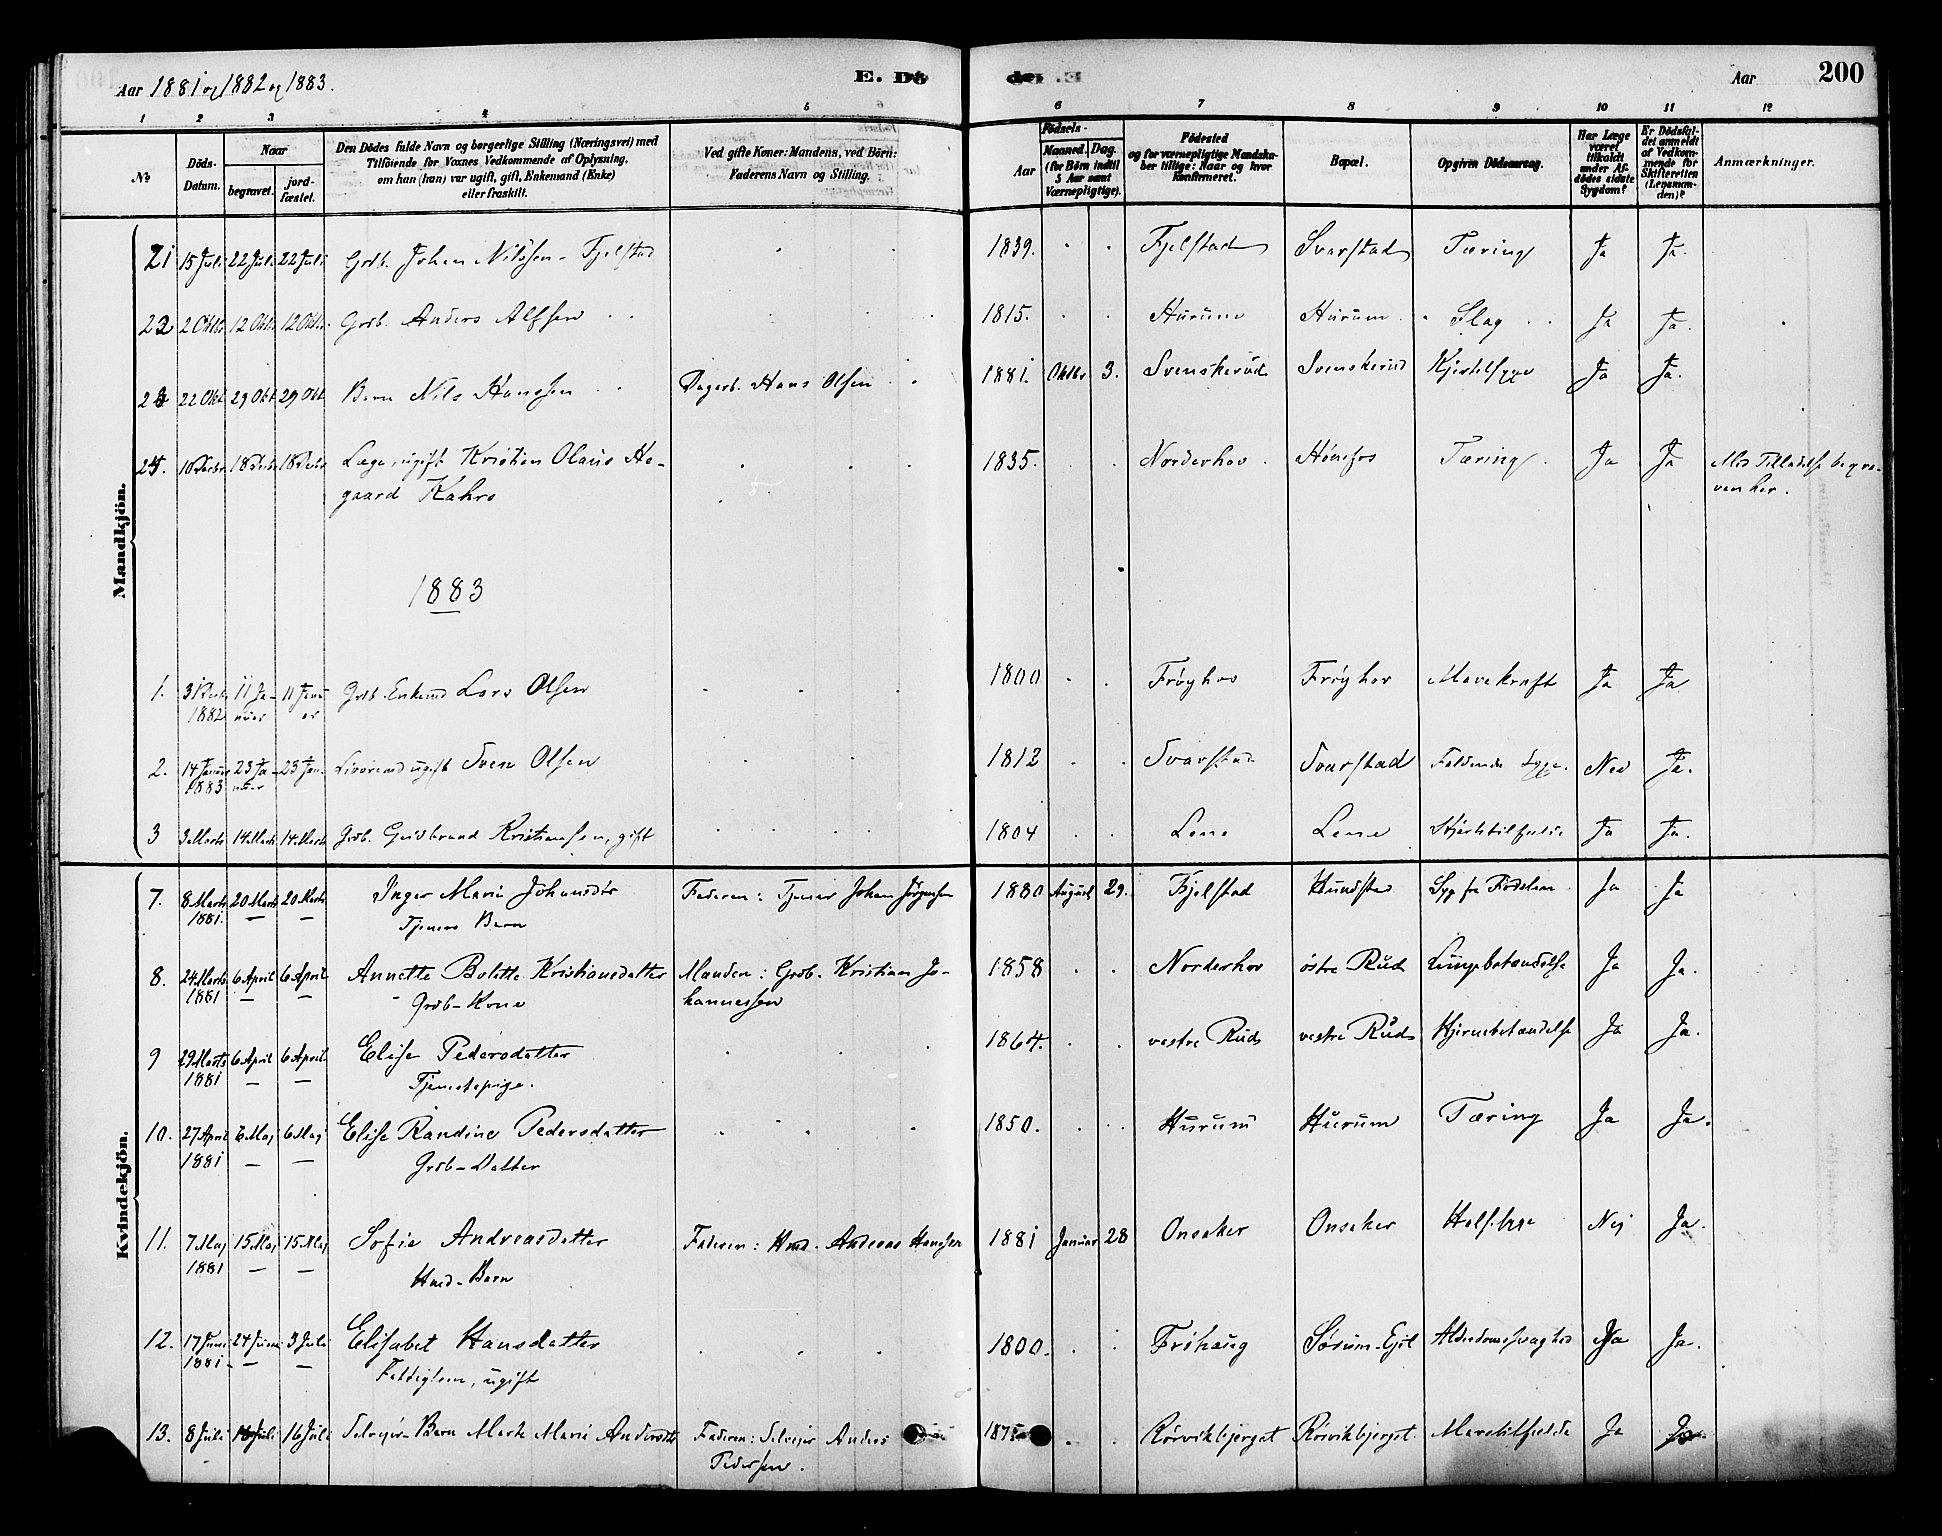 Aar 1881 og 1882 og 1883.
E. Dö
Aar 200
1 2 3 4 5 6 7 8 9 10 11 12
No
Döds-Datum.
Naar
begravet.
jord-fæstet.
Den Dödes fulde Navn og borgerlige Stilling (Næringsvei) med
Tilföiende for Voxnes Vedkommende af Oplysning,
om han (hun) var ugift, gift, Enkemand (Enke)
eller fraskilt.
Ved gifte Koner: Mandens, ved Börn:
Faderens Navn og Stilling.
Födsels-
Aar
Maaned. Dag.
(for Börn indtil
5 Aar samt
Værnepligtige).
Födested
og for værnepligtige Mandska-
ber tillige: Naar og hvor
konfirmeret.
Bopæl.
Opgiven Dödsaarsag.
Har Læge
været
tilkaldt
under Af-
dödes sidste
Sygdom?
Er Dödsfal-
det anmeldt
af Vedkom-
mende for
Skifteretten
(Lensman-
den)?
Anmærkninger.
Mandkjön.
21 15 Juli 22 Juli 22 Juli Grdb. Johan Nilssen Fjelstad 1839. Fjelstad Svarstad Tæring Ja Ja.
22 2 Oktbr 12 Oktbr 12 Oktbr. Grdb. Anders Alfsen 1815. Hurum Hurum Slag Ja Ja.
23 22 Okt. 29 Okt 29 Okt Barn Nils Hanssen Dagarb. Hans Olsen 1881. Oktbr 3. Svenskerud Svenskerud Kjertelsyge Ja Ja.
24. 10 Decbr. 18 Decbr 18 Decbr Læge, ugift Kristian Olaus Ho- 1835. Norderhov. Hönefos Tæring. Ja Ja Med Tilladelse begra-
gaard Kahrs ven her.
1883
1. 31 Decbr 11 Ja- 11 Janu Grdb. Enkemd Lars Olsen 1800 Frøyhov Frøyhov Mavekræft Ja Ja
1882 nuar ar
2. 14 Januar 23 Ja- 23 Jan. ugift Sven Olsen 1812 Svarstad Svarstad Faldende Syge. Nei Ja.
1883 nuar
3 3 Marts 14 Marts 14 Marts Grdb. Gudbrand Kristiansen, gift 1804 Lene Lene Ja Ja.
Kvindekjön.
7. 8 Marts 20 Marts 20 Marts Inger Marie Johansdtr Faderen: Tjener Johan Jörgensen 1880 August 29. Fjelstad Hundstad Syg fra Fødselen Ja Ja
1881. — — Tjeners Barn
8. 24 Marts 6 April 6 April Annette Bolette Kristiansdatter Manden: Grdb. Kristian Jo- 1858 Norderhov östre Rud Lungebetændelse Ja Ja.
1881 — — Grdb-Kone hannessen
9 29 Marts 6 April 6 April Elise Pedersdatter 1864. vestre Rud vestre Rud Hjernebetændelse Ja Ja.
1881 — — Tjenestepige.
10. 27 April 6 Maj 6 Maj Elise Randine Pedersdatter 1850. Hurum Hurum Tæring Ja Ja.
1881 — — Grdb-Datter
11. 7 Maj 15 Maj 15 Maj Sofie Andreasdatter Faderen: Hmd. Andreas Hansen 1881 Januar 28 Onsaker Onsaker Halssyge Nej Ja.
1881 — — Hmd-Barn
12. 17 Juni 24 Juni 3 Juli Elisabet Hansdatter 1800. Fröhaug Sörum-Ejet Alderdomssvaghed Ja Ja.
1881. — — Fattiglem, ugift
13. 8 Juli 16 Juli 16 Juli Selvejer-Barn Marte Marie Andersdtr Faderen: Selvejer Anders Rörvikbjerget Rörvikbjerget. Mavetilfælde Ja Ja.
Pedersen.